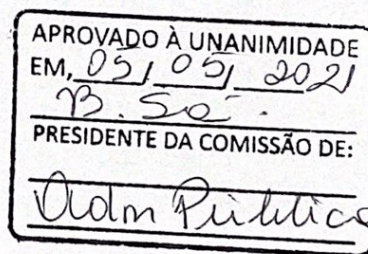 APROVADO À UNANIMIDADE
EM, 05/05/2021
B. Sá.
PRESIDENTE DA COMISSÃO DE:
Adm Pública